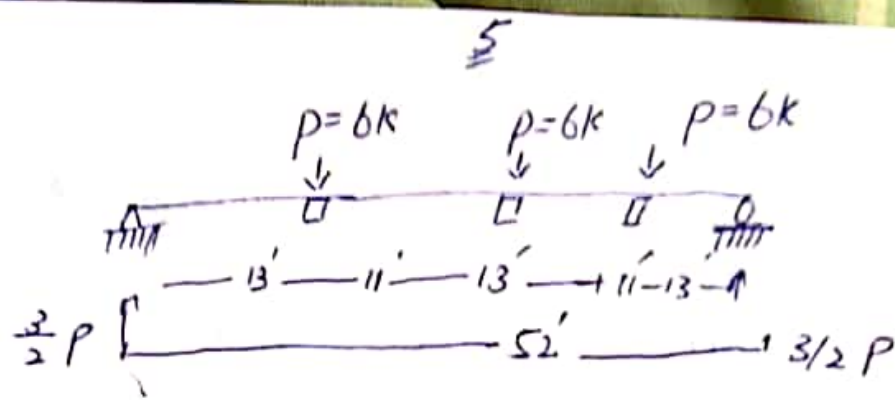 5
P=6K P=6K P=6K
13' 11' 13' 11' 13'
3/2 P 52' 3/2 P